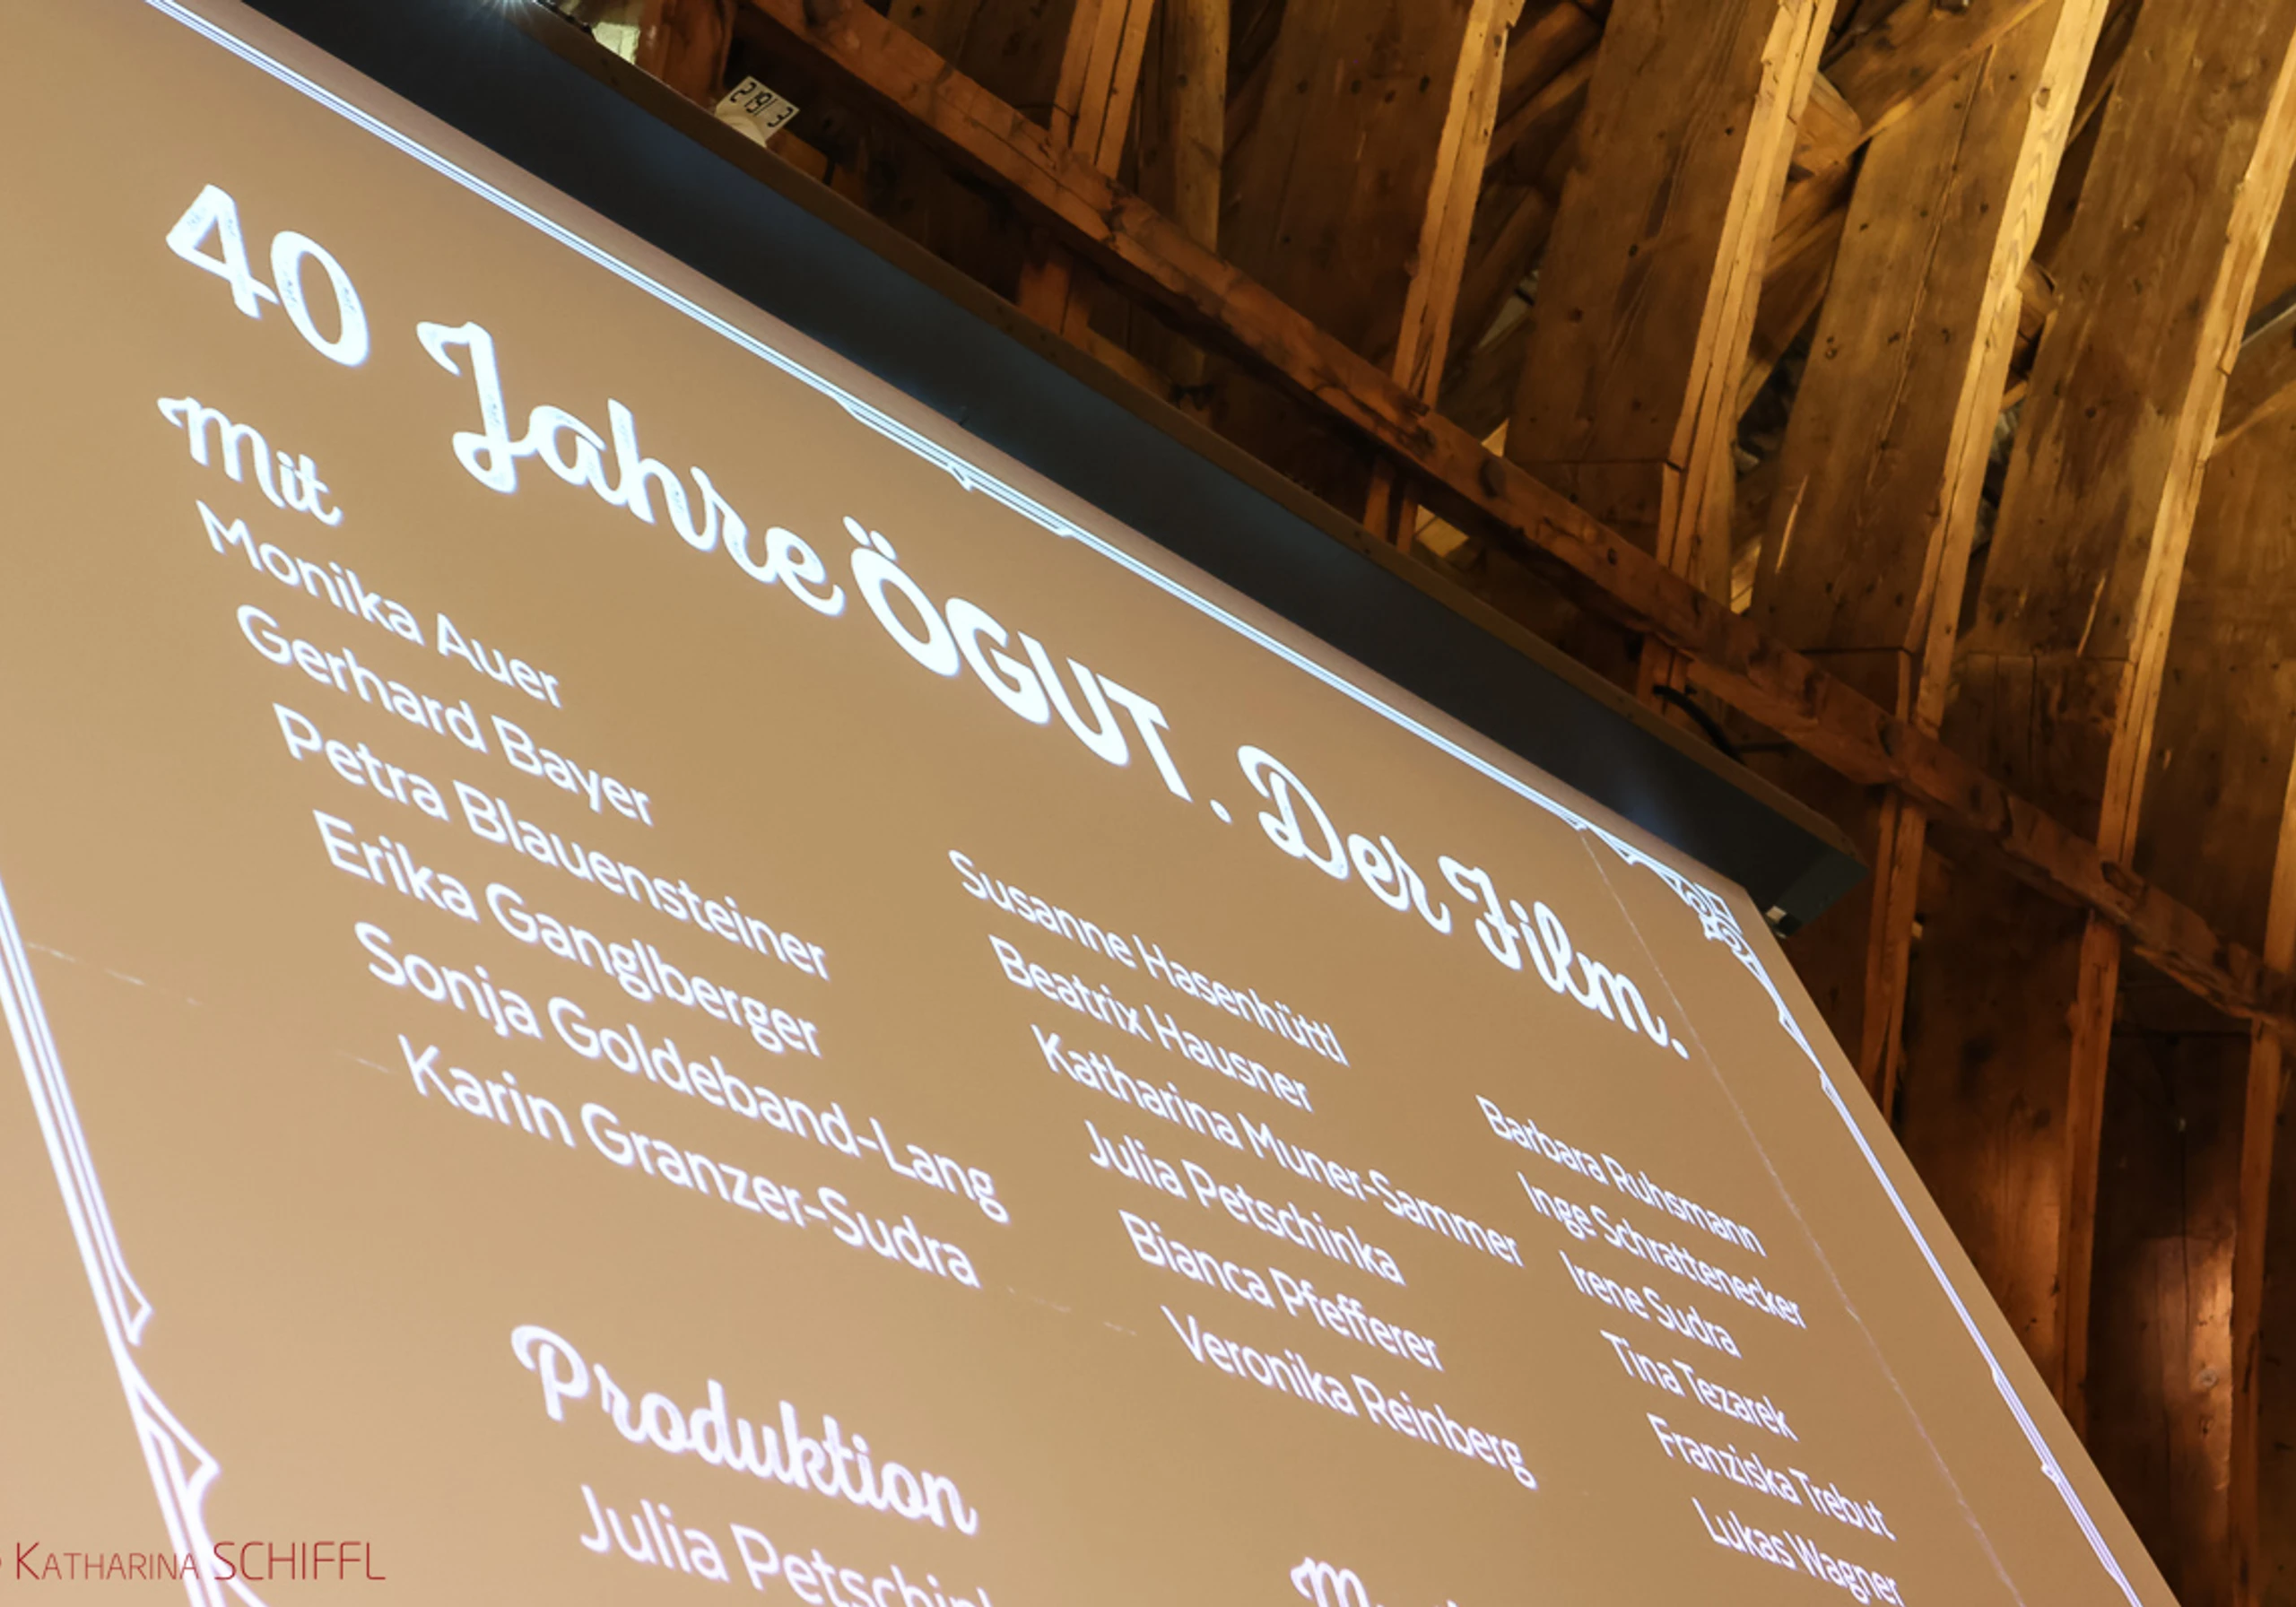 40 Jahre ÖGUT. Der Film.
Mit
Monika Auer
Gerhard Bayer
Petra Blauensteiner
Erika Ganglberger
Sonja Goldeband-Lang
Karin Granzer-Sudra
Susanne Hasenhüttl
Beatrix Hausner
Katharina Muner-Sammer
Julia Petschinka
Bianca Pfefferer
Veronika Reinberg
Barbara Ruhsmann
Inge Schrattenecker
Irene Sudra
Tina Tezarek
Franziska Trebut
Lukas Wagner
Produktion
Julia
KATHARINA SCHIFFL